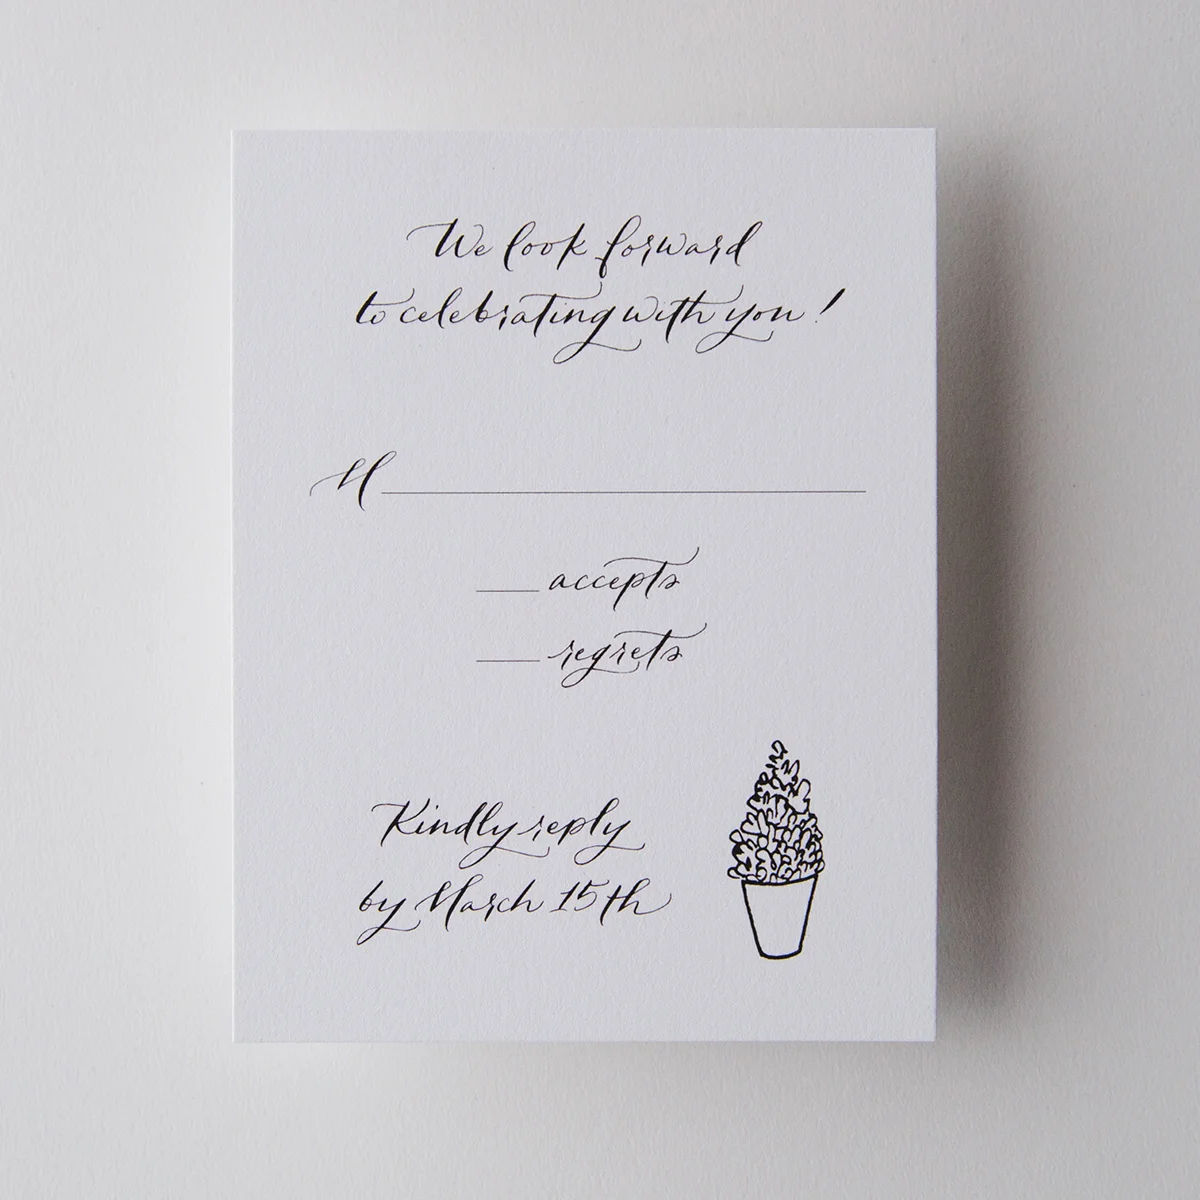 We look forward
to celebrating with you!
M
accepts
regrets
Kindly reply
by March 15th